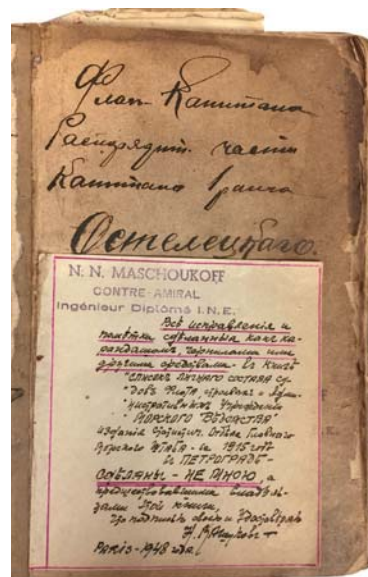 Флаг-Капитана
Распорядит. части
Капитана 1 ранга
Остелецкаго.
N. N. MASCHOUKOFF
CONTRE-AMIRAL
Ingénieur Diplômé I.N.E.
Всѣ исправленія и
помѣтки сдѣланныя какъ ка-
рандашомъ, чернилами или
другими средствами - въ книгѣ
"Списокъ личнаго состава су-
довъ флота, строевых и Адми-
нистративныхъ Учреждений
МОРСКОГО ВѢДОМСТВА"
издания Статист. Отдѣл Главного
Морского Штаба - в 1915 году
в ПЕТРОГРАДѢ -
СДѢЛАНЫ - НЕ МНОЮ, а
предшествовавшими владѣль-
цами этой книги,
что подписью своею и удостовѣряю
Н. Машуков
PARIS - 1948 года